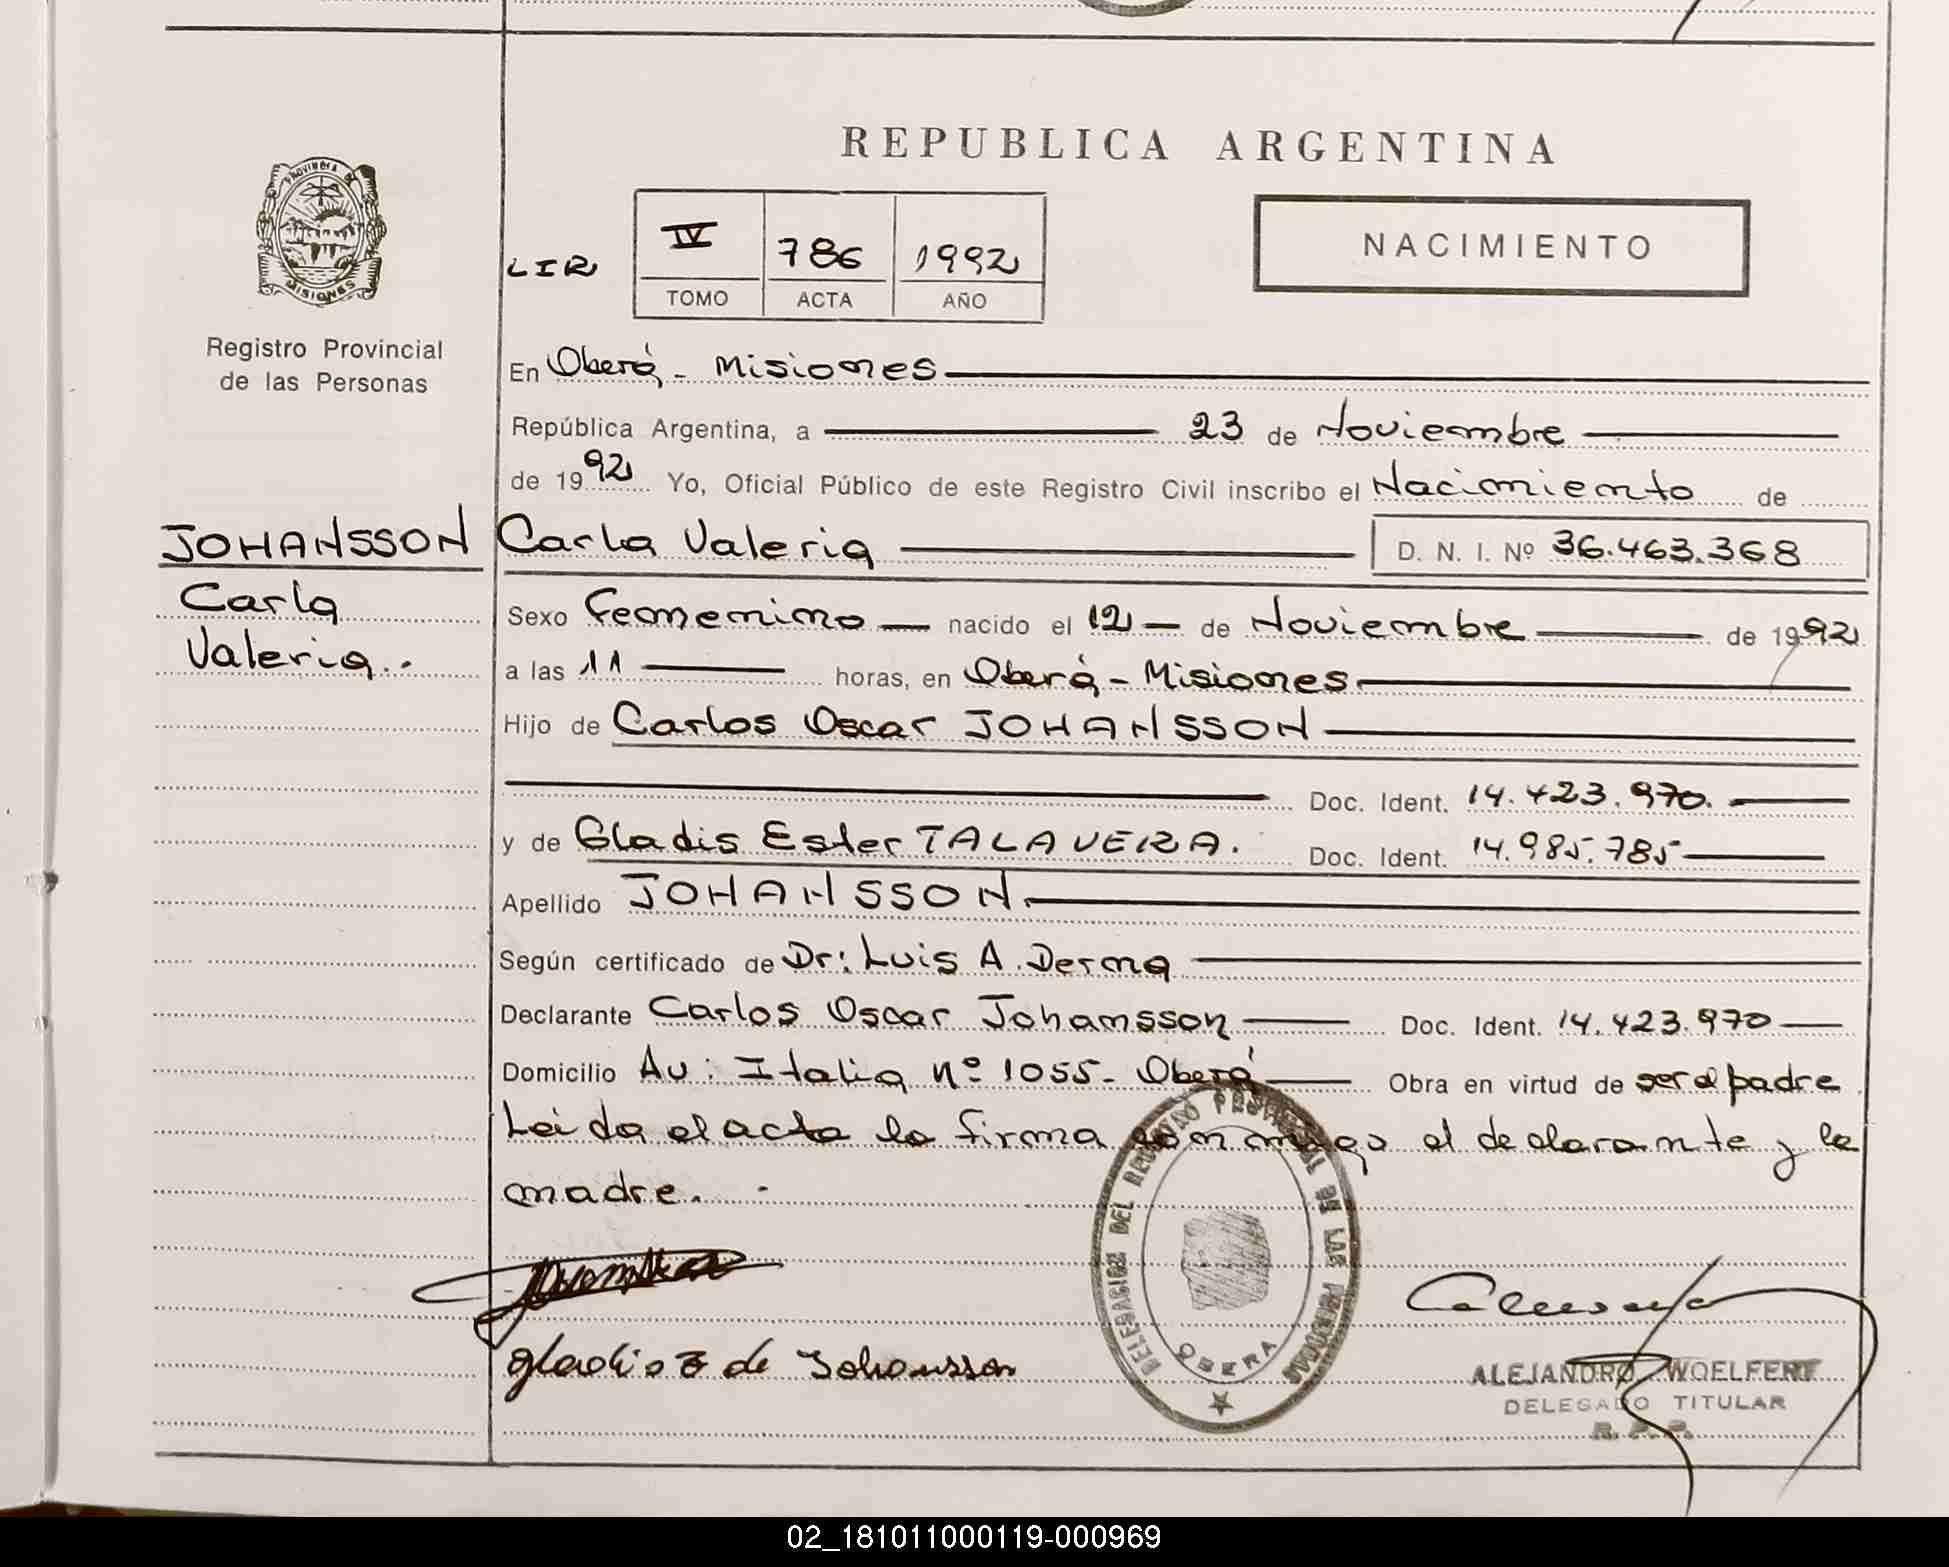 REPUBLICA ARGENTINA
PROVINCIA DE
MISIONES
Registro Provincial
de las Personas
LIR
IV 786 1992
TOMO ACTA AÑO
NACIMIENTO
En Oberá - Misiones
República Argentina, a 23 de Noviembre
de 1992 Yo, Oficial Público de este Registro Civil inscribo el Nacimiento de
JOHANSSON Carla Valeria D. N. I. Nº 36.463.368
Carla
Valeria..
Sexo Femenino nacido el 12 de Noviembre de 1992
a las 11 horas, en Oberá - Misiones
Hijo de Carlos Oscar JOHANSSON
Doc. Ident. 14.423.970.
y de Gladis Ester TALAVERA. Doc. Ident. 14.985.785
Apellido JOHANSSON.
Según certificado de Dr: Luis A. Derna
Declarante Carlos Oscar Johansson Doc. Ident. 14.423.970
Domicilio Av: Italia nº 1055- Oberá Obra en virtud de ser el padre
Leida el acta la firma conmigo el declarante y la
madre.
DELEGACION DEL REGISTRO PROVINCIAL DE LAS PERSONAS
OBERA
gladis E de Johansson
ALEJANDRO WOELFERT
DELEGADO TITULAR
R. P. P.
02_181011000119-000969